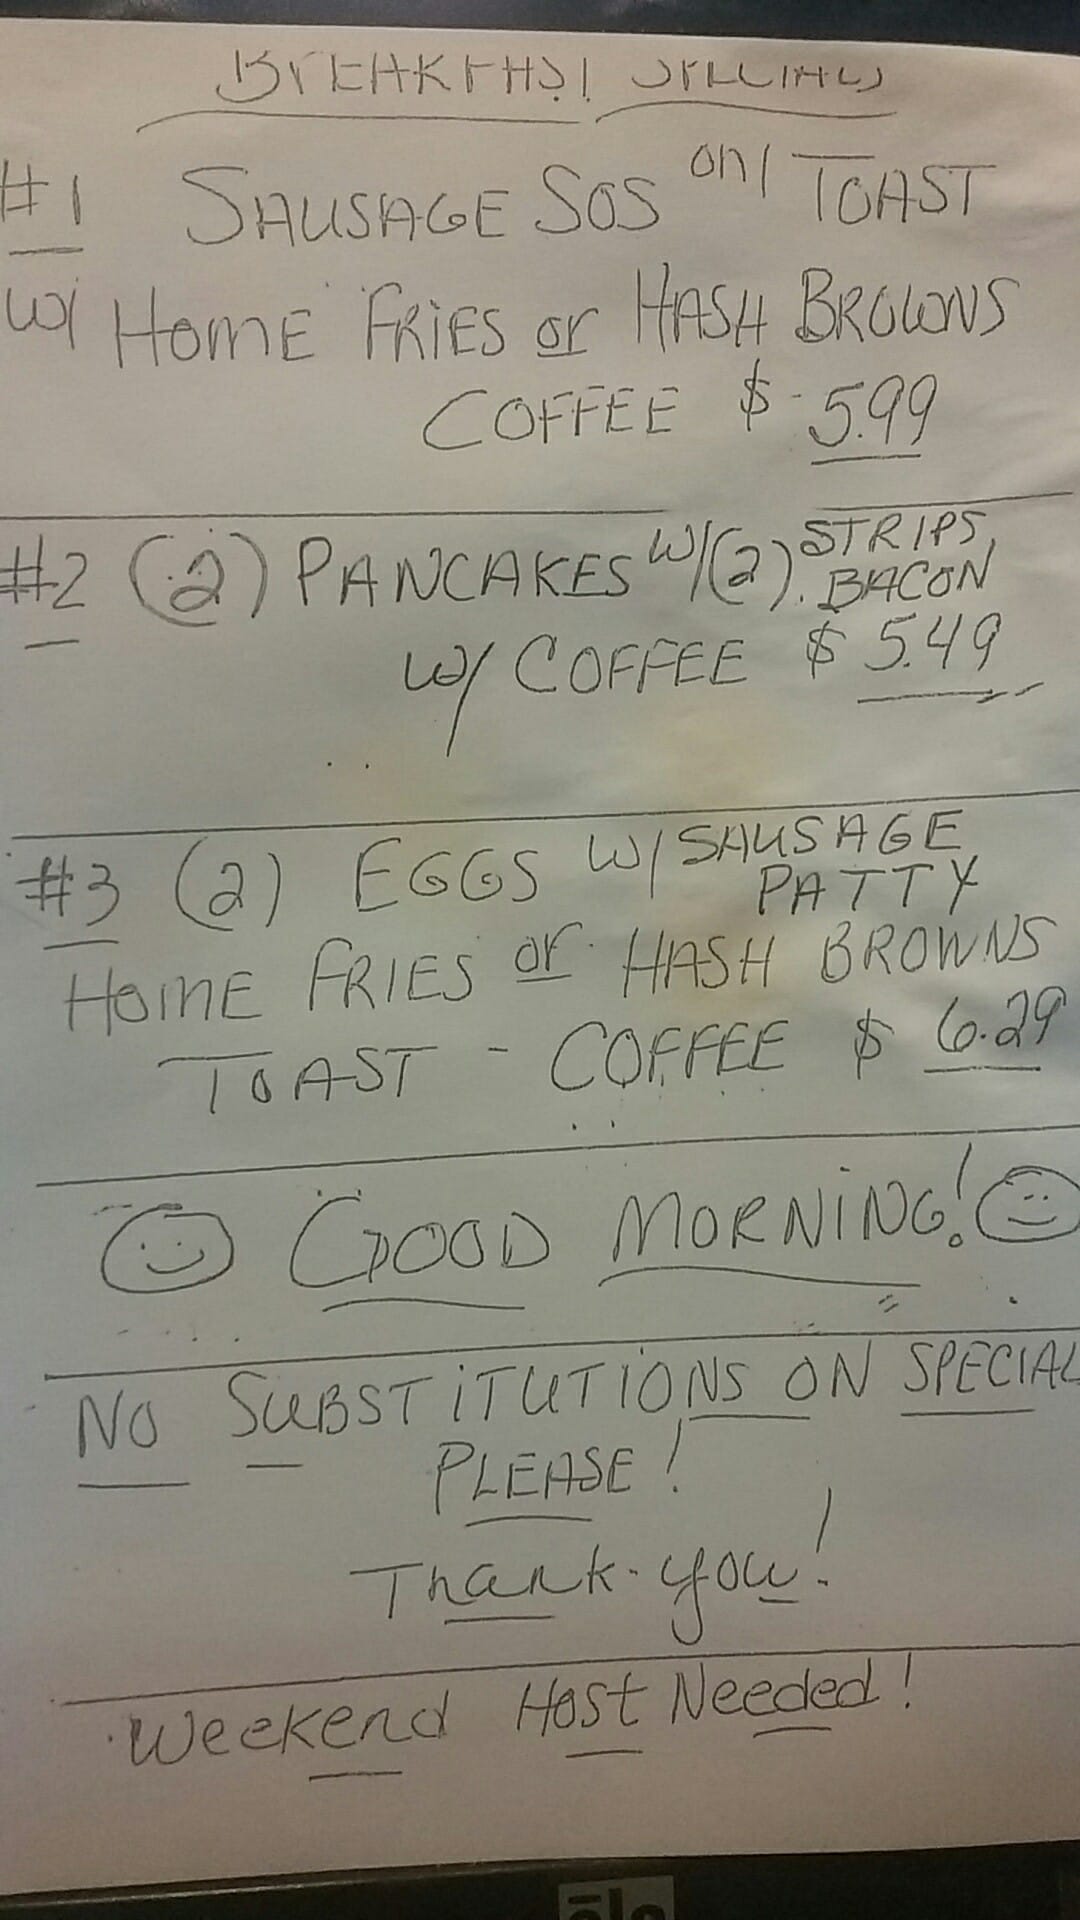 BrEAKFAST SPECIALS
#1 SAUSAGE SOS on/ TOAST
W/ HOME FRIES or HASH BROWNS
COFFEE $ 5.99
#2 (2) PANCAKES W/(2) STRIPS
BACON
W/ COFFEE $ 5.49
#3 (2) EGGS W/ SAUSAGE
PATTY
HOME FRIES or HASH BROWNS
TOAST - COFFEE $ 6.29
GOOD MORNING!
NO SUBSTITUTIONS ON SPECIAL
PLEASE!
Thank-you!
Weekend Host Needed!